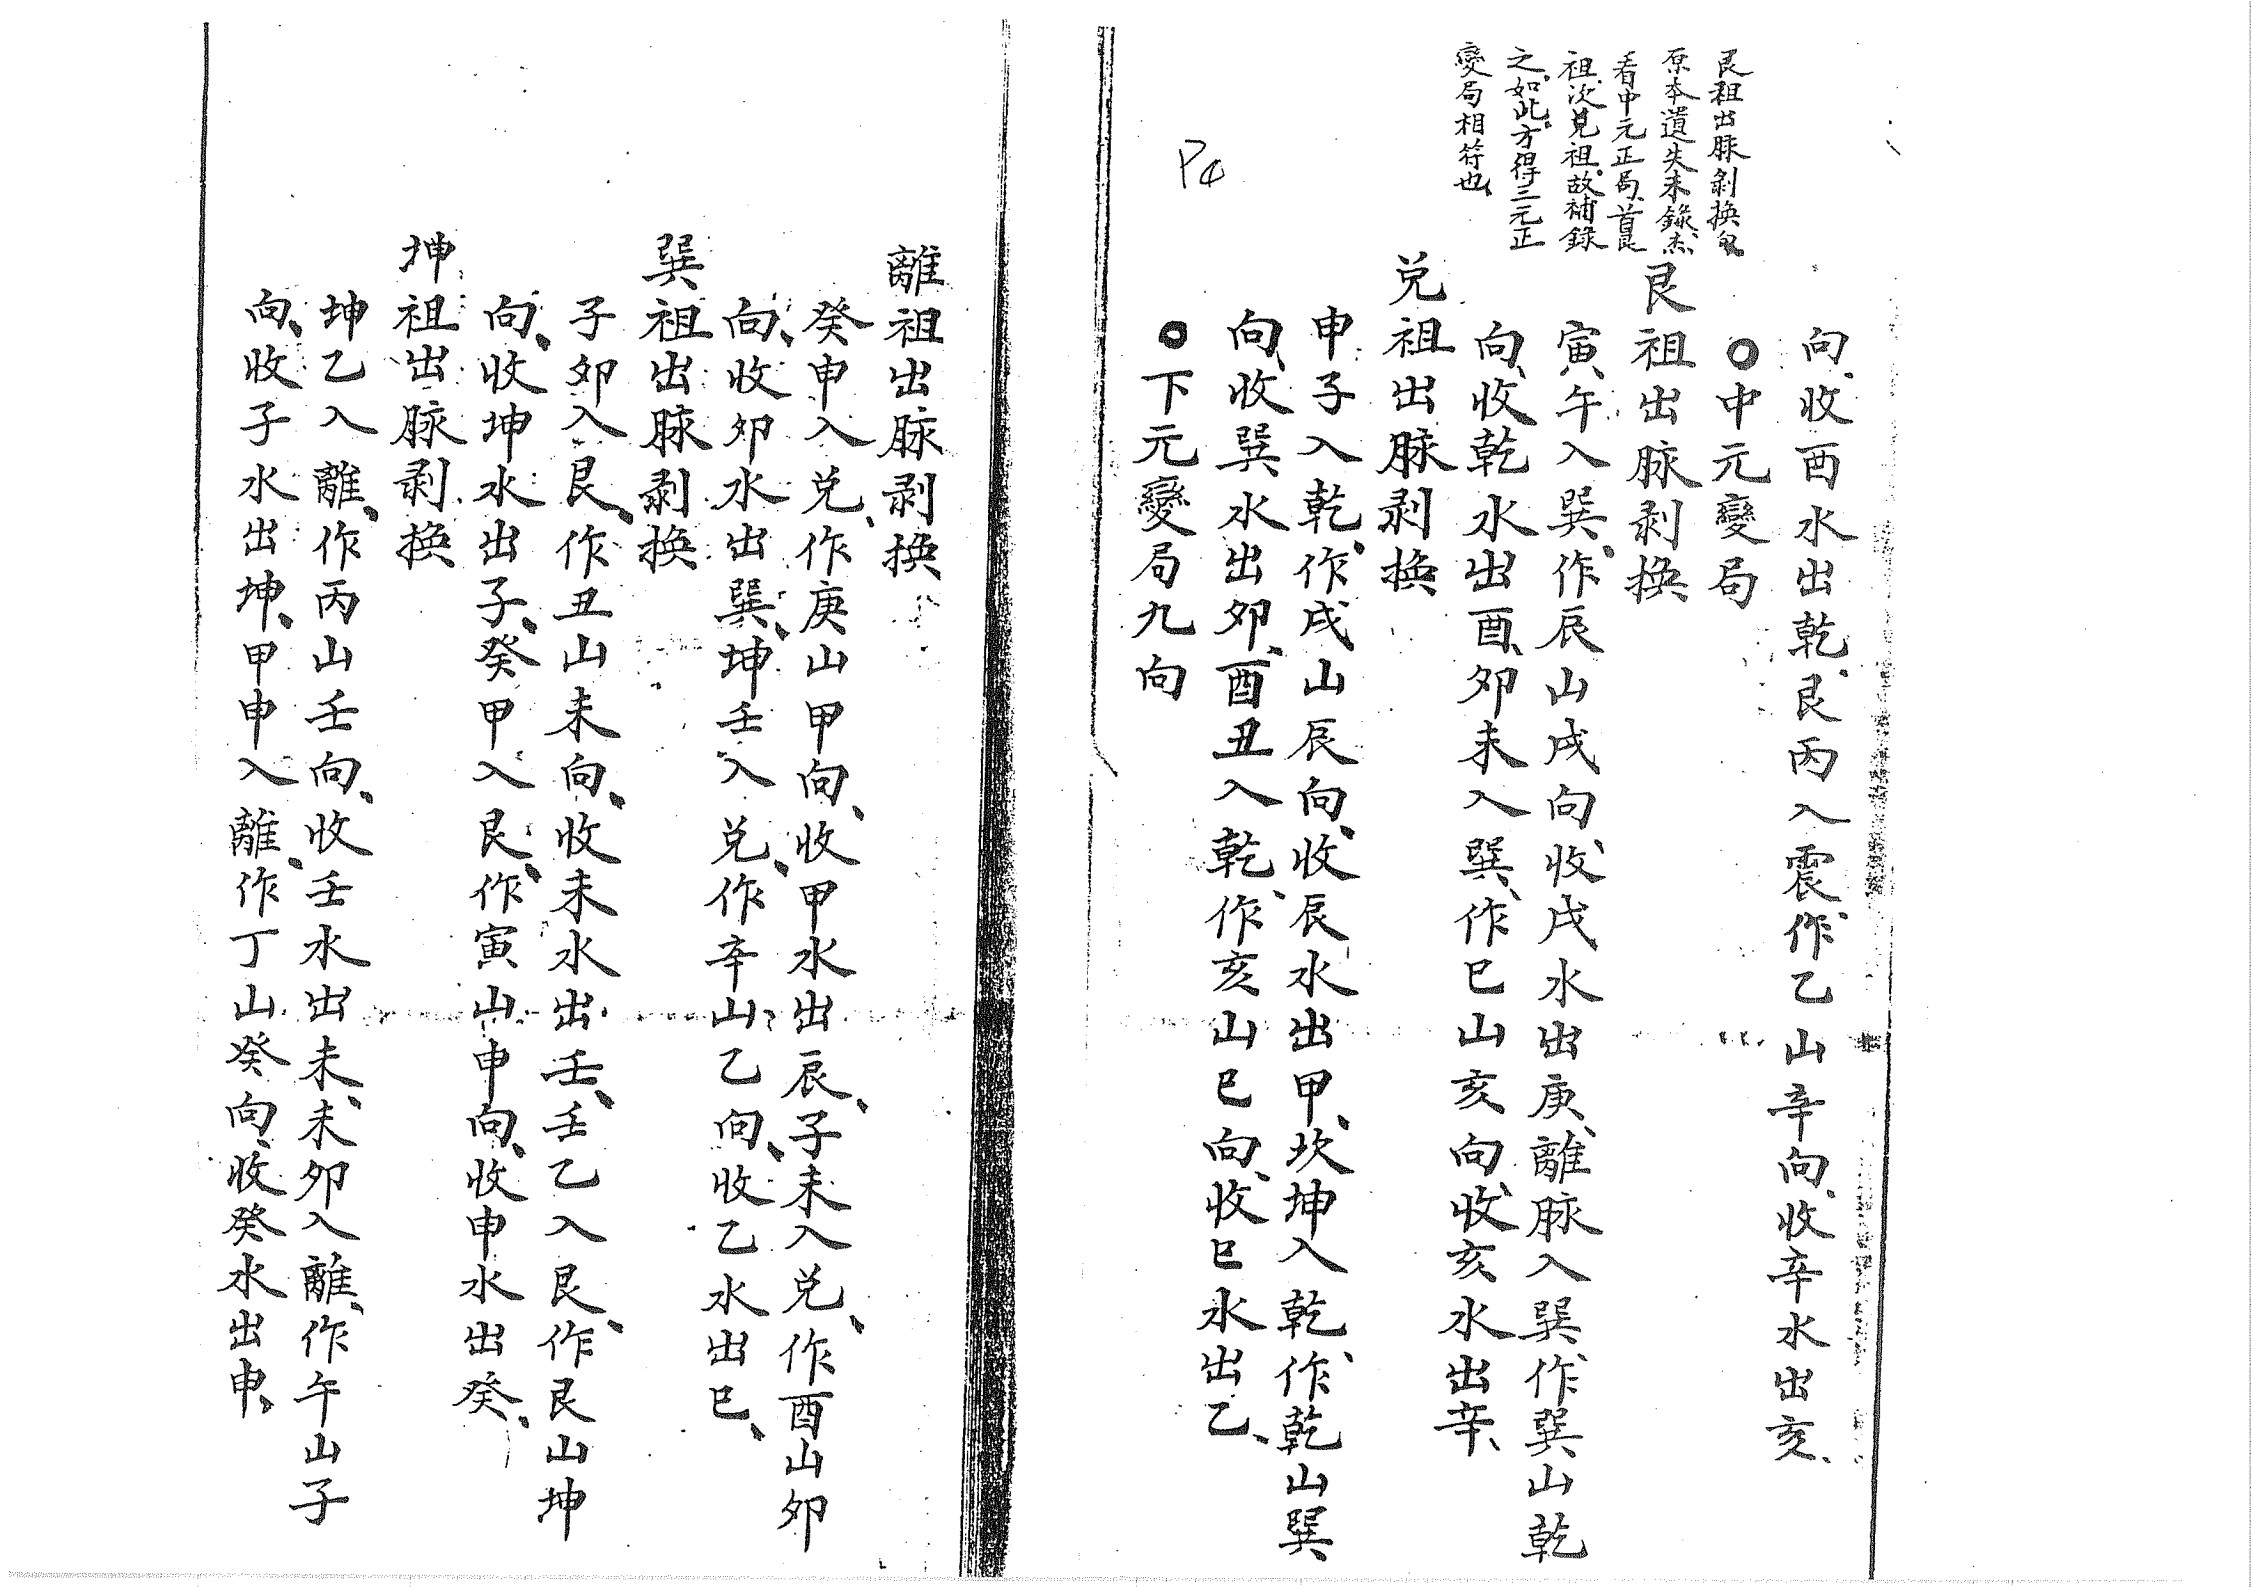 艮祖出脉剝換句
原本遺失未錄、杰
看中元正局、首艮
祖、次兌祖、故補錄
之、如此、方得三元正
變局相符也、
P4
向、收酉水出乾、艮丙入震、作乙山辛向、收辛水出亥、
○中元變局
艮祖出脉剝換
寅、午入巽、作辰山戌向、收戌水出庚、離脉入巽、作巽山乾
向、收乾水出酉、卯未入巽、作巳山亥向、收亥水出辛、
兌祖出脉剝換
申子入乾、作戌山辰向、收辰水出甲、坎坤入乾、作乾山巽
向、收巽水出卯、酉丑入乾、作亥山巳向、收巳水出乙、
○下元變局九向
離祖出脉剝換
癸申入兌、作庚山甲向、收甲水出辰、子未入兌、作酉山卯
向、收卯水出巽、坤壬入兌、作辛山乙向、收乙水出巳、
巽祖出脉剝換
子卯入艮、作丑山未向、收未水出壬、壬乙入艮、作艮山坤
向、收坤水出子、癸甲入艮、作寅山申向、收申水出癸、
坤祖出脉剝換
坤乙入離、作丙山壬向、收壬水出未、未卯入離、作午山子
向、收子水出坤、甲申入離、作丁山癸向、收癸水出申、